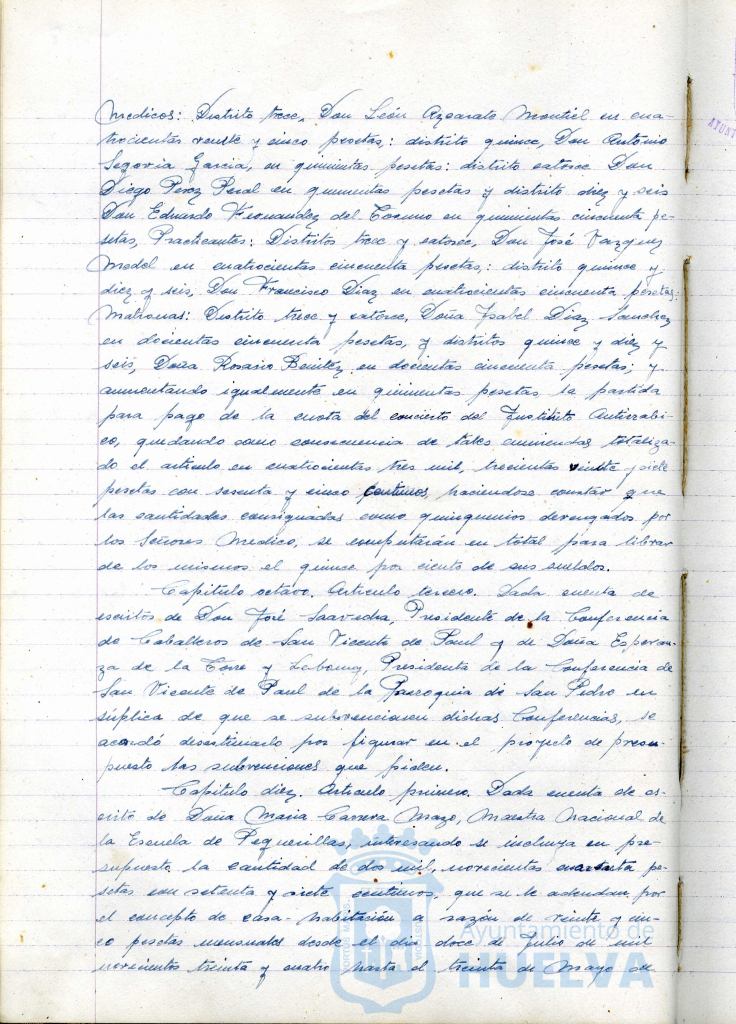 Medicos: Distrito trece, Don León Azcarate Montiel en cua-
trocientas veinte y cinco pesetas; distrito quince, Don Antonio
Segovia Garcia, en quinientas pesetas: distrito catorce Don
Diego Perez Peral en quinientas pesetas y distrito diez y seis
Don Eduardo Fernandez del Torno en quinientas cincuenta pe-
setas, Practicantes: Distritos trece y catorce, Don José Vazquez
Medel en cuatrocientas cincuenta pesetas; distrito quince y
diez y seis, Don Francisco Diaz en cuatrocientas cincuenta pesetas;
Matronas: Distrito trece y catorce, Doña Ysabel Diaz Sanchez
en docientas cincuenta pesetas, y distritos quince y diez y
seis, Doña Rosario Benitez en docientas cincuenta pesetas; y
aumentando igualmente en quinientas pesetas la partida
para pago de la cuota del concierto del Ynstituto Antirrabi-
co, quedando como consecuencia de tales enmiendas totaliza-
do el articulo en cuatrocientas tres mil, trecientas veinte y siete
pesetas con sesenta y cinco centimos, haciendose constar que
las cantidades consignadas como quinquenios devengados por
los Señores Medico, se computarán en total para librar
de los mismos el quince por ciento de sus sueldos.
Capitulo octavo. Articulo tercero. Dada cuenta de
escritos de Don José Saavedra, Presidente de la Conferencia
de Caballeros de San Vicente de Paul y de Doña Esperan-
za de la Torre y Presidenta de la Conferencia de
San Vicente de Paul de la Parroquia de San Pedro en
súplica de que se subvencionen dichas Conferencias, se
acordó desestimarlo por figurar en el proyecto de presu-
puesto las subvenciones que piden.
Capitulo diez. Articulo primero. Dada cuenta de es-
crito de Doña Maria Carrera Mazo, Maestra Nacional de
la Escuela de Pequerillas, interesando se incluya en pre-
supuesto la cantidad de dos mil, novecientas cuarenta pe-
setas con setenta y siete centimos, que se le adeudan por
el concepto de casa-habitación a razón de veinte y cin-
co pesetas mensuales desde el dia doce de Julio de mil
novecientos treinta y cuatro hasta el treinta de Mayo de
Ayuntamiento de
HUELVA